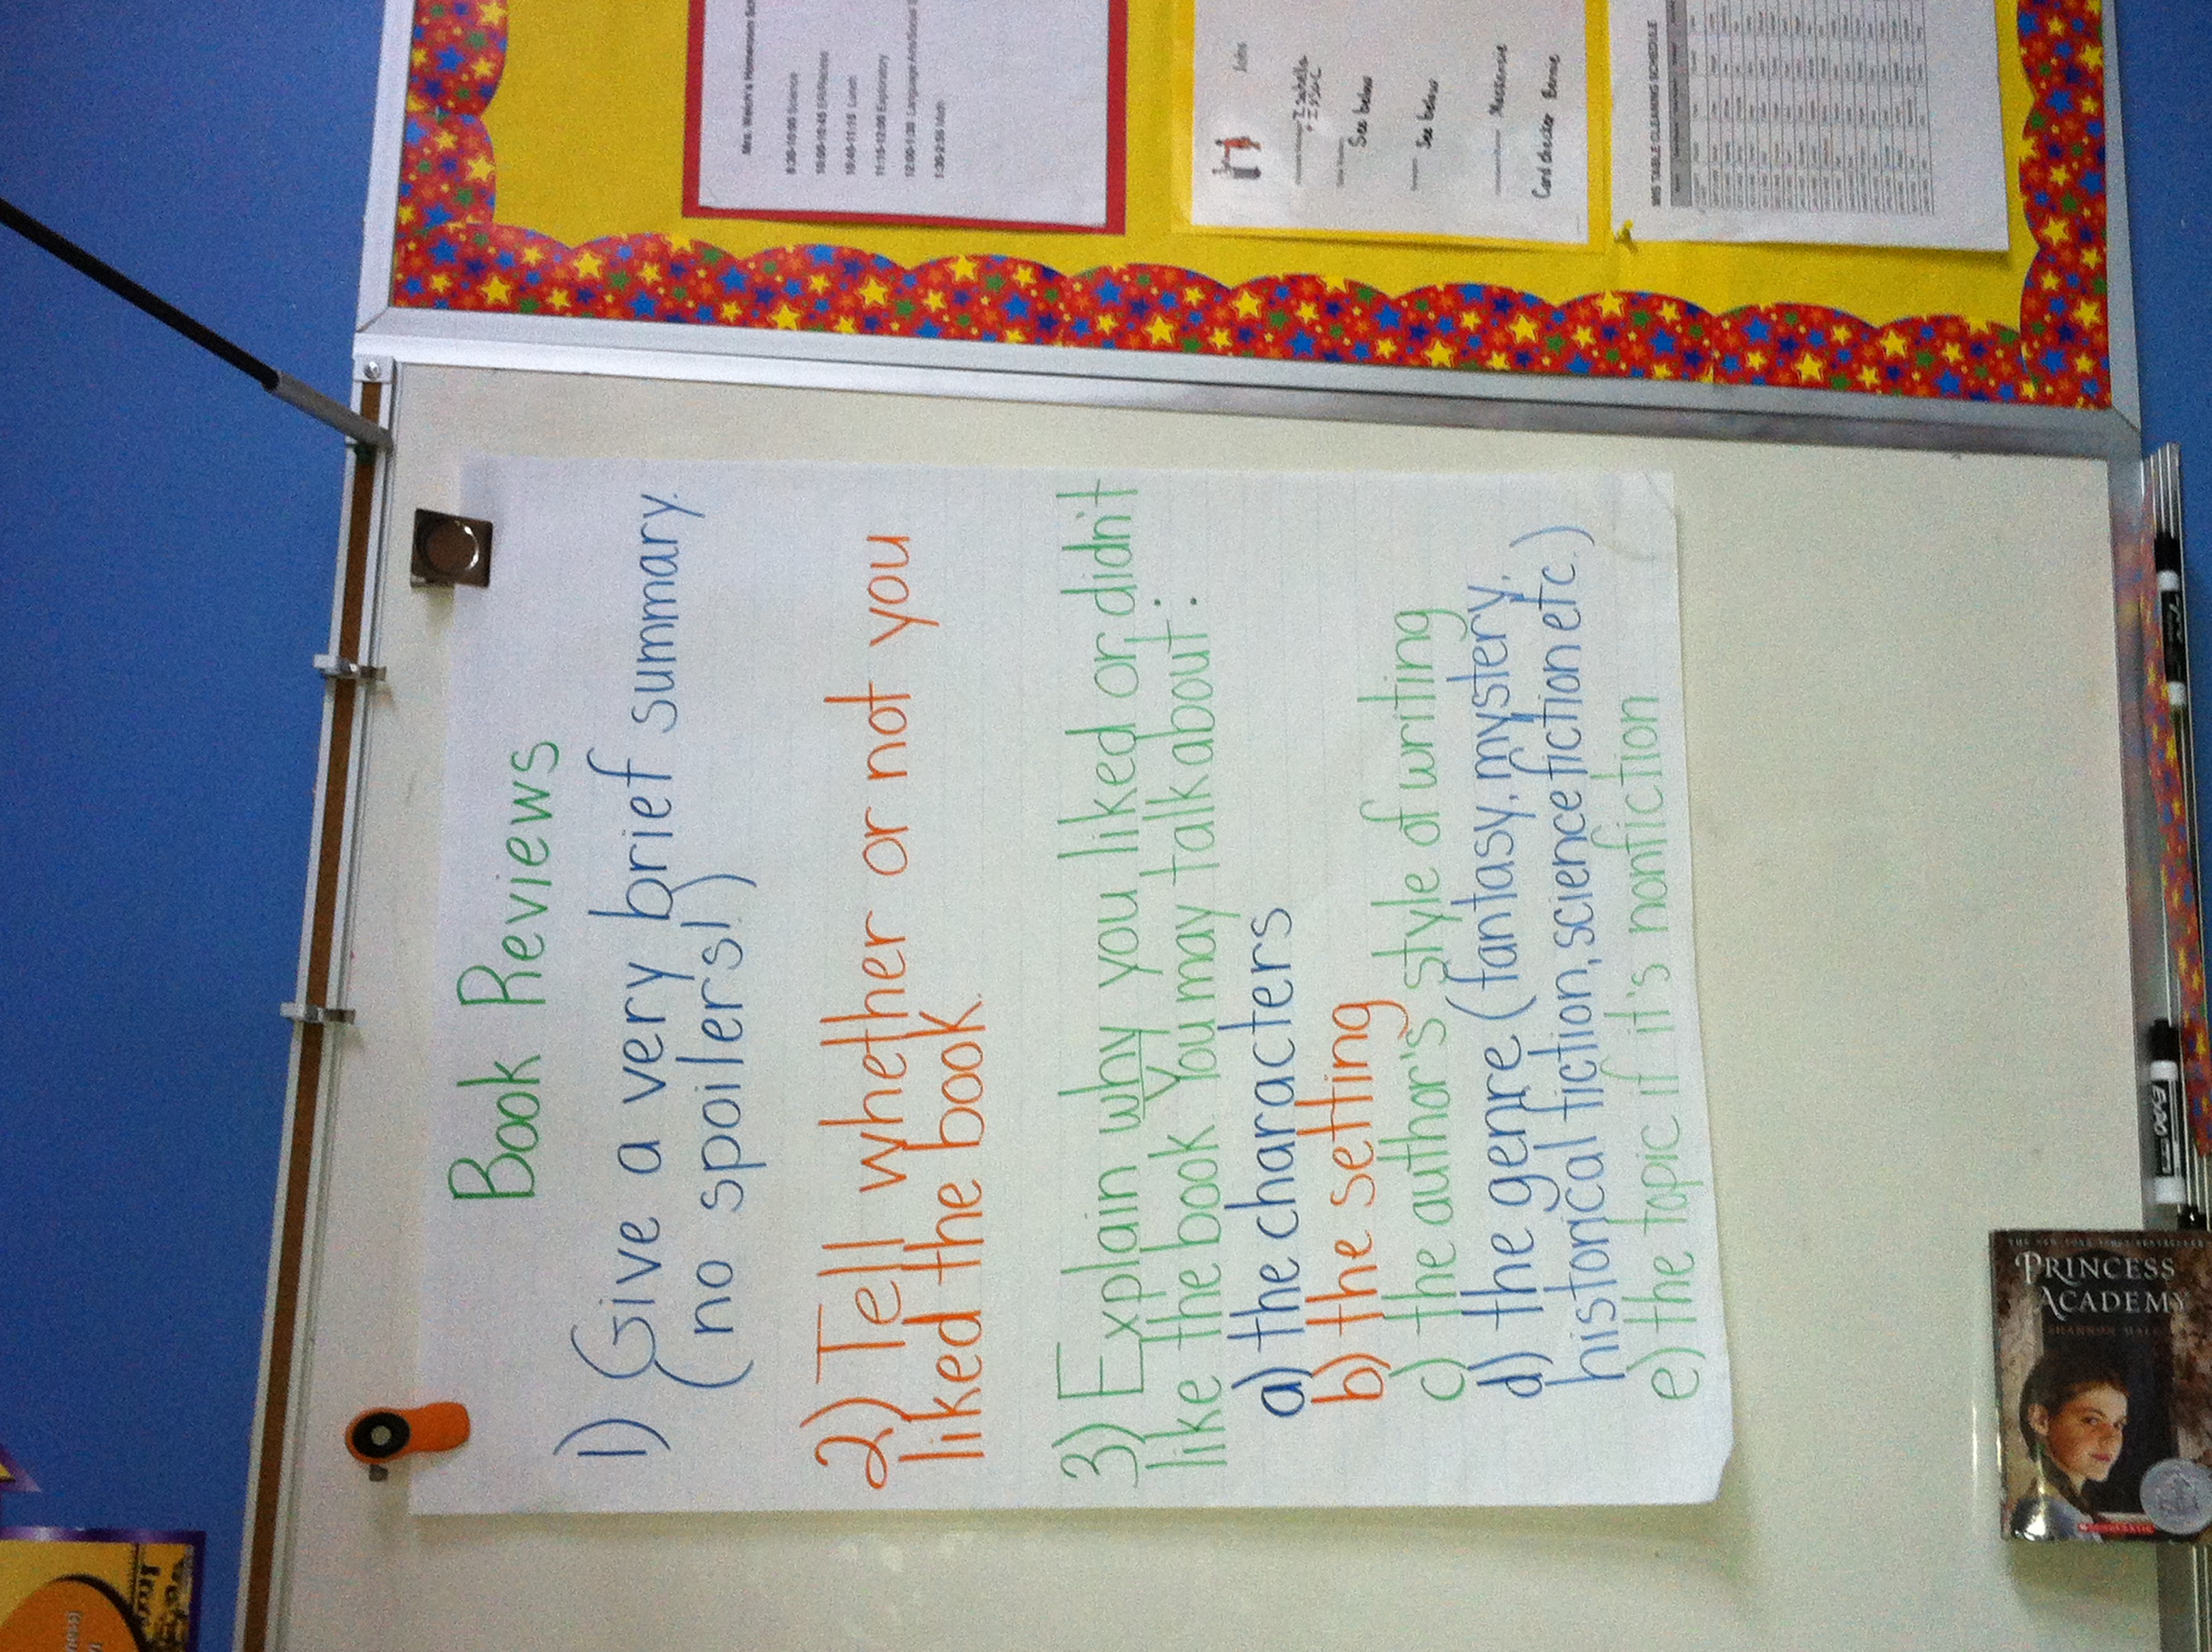 Book Reviews
1) Give a very brief summary.
(no spoilers!)
2) Tell whether or not you
liked the book.
3) Explain why you liked or didn't
like the book. You may talk about:
a) the characters
b) the setting
c) the author's style of writing
d) the genre (fantasy, mystery,
historical fiction, science fiction etc.)
e) the topic if it's nonfiction
Mrs. Homeroom
8:30-10:00 Science
10:40-11:15 Lunch
11:15-12:00 Exploratory
12:00-1:30 Language Arts/Social
Jobs
See below
See below
Mackensie
Card checker
MS TABLE CLEANING SCHEDULE
PRINCESS
ACADEMY
SHANNON
SCHOLASTIC
EXPO